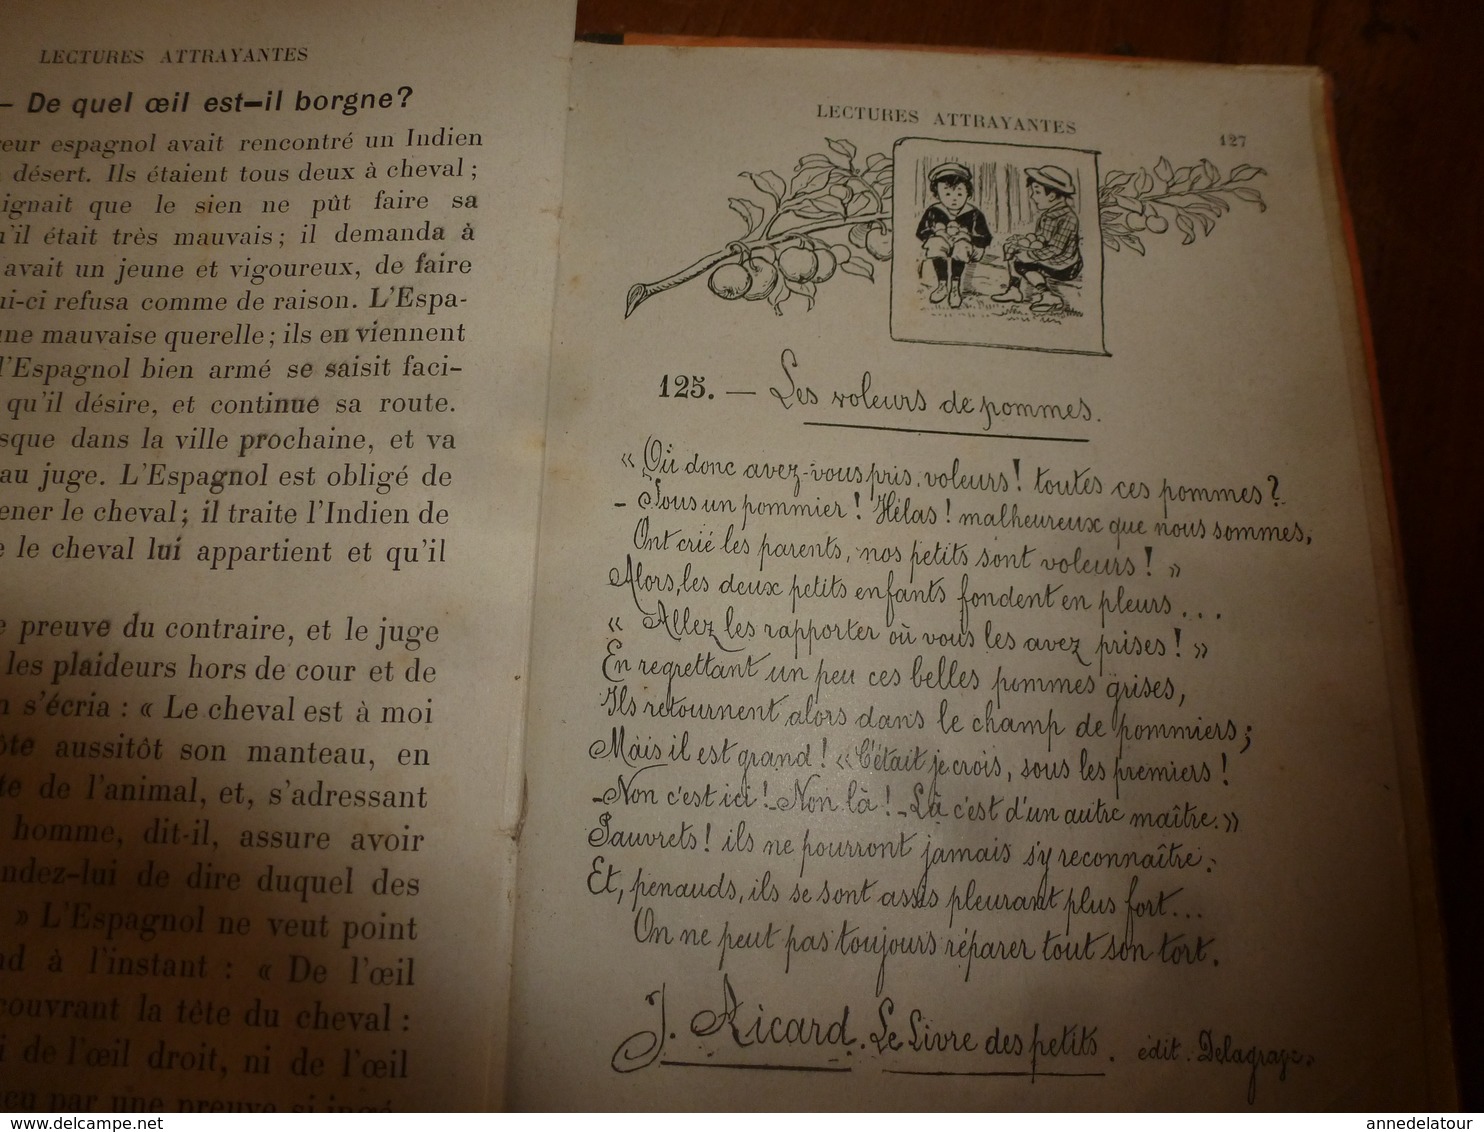 LECTURES ATTRAYANTES
— De quel œil est-il borgne?
eur espagnol avait rencontré un Indien
désert. Ils étaient tous deux à cheval;
ignait que le sien ne pût faire sa
u'il était très mauvais; il demanda à
avait un jeune et vigoureux, de faire
ui-ci refusa comme de raison. L'Espa-
une mauvaise querelle; ils en viennent
l'Espagnol bien armé se saisit faci-
qu'il désire, et continue sa route.
sque dans la ville prochaine, et va
au juge. L'Espagnol est obligé de
ener le cheval; il traite l'Indien de
e le cheval lui appartient et qu'il
e preuve du contraire, et le juge
les plaideurs hors de cour et de
n s'écria : « Le cheval est à moi
ôte aussitôt son manteau, en
te de l'animal, et, s'adressant
homme, dit-il, assure avoir
ndez-lui de dire duquel des
» L'Espagnol ne veut point
nd à l'instant : « De l'œil
couvrant la tête du cheval :
i de l'œil droit, ni de l'œil
çu par une preuve si ingé
LECTURES ATTRAYANTES
127
125. — Les voleurs de pommes.
« Où donc avez-vous pris, voleurs! toutes ces pommes?
- Sous un pommier! Hélas! malheureux que nous sommes,
Ont crié les parents, nos petits sont voleurs! »
Alors, les deux petits enfants fondent en pleurs...
« Allez les rapporter où vous les avez prises! »
En regrettant un peu ces belles pommes grises,
Ils retournent alors dans le champ de pommiers;
Mais il est grand! « C'était je crois, sous les premiers!
- Non c'est ici! - Non là! - Là c'est d'un autre maître. »
Pauvrets! ils ne pourront jamais s'y reconnaître;
Et, penauds, ils se sont assis pleurant plus fort...
On ne peut pas toujours réparer tout son tort.
J. Aicard. Le Livre des petits. édit. Delagrave.
annedelatour